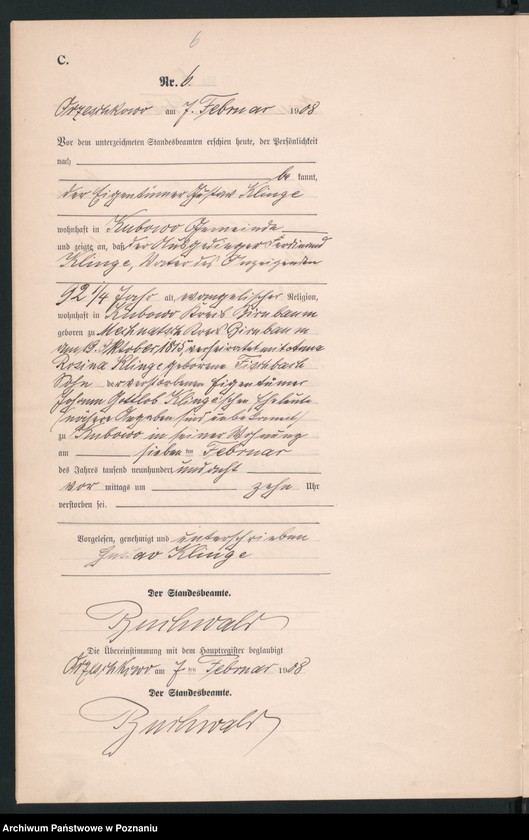 6
C.
Nr. 6.
Orzeschkowo am 7. Februar 1908
Vor dem unterzeichneten Standesbeamten erschien heute, der Persönlichkeit
nach
be kannt,
der Eigentümer Gustav Klinge
wohnhaft in Kubowo Gemeinde
und zeigte an, daß der Ausgedinger Ferdinand
Klinge, Vater des Anzeigenden
92 1/4 Jahr alt, evangelischer Religion,
wohnhaft in Kubowo Kreis Birnbaum
geboren zu Kreis Birnbaum
am Oktober 1815, verheiratet mit Anna
Rosina Klinge geborene
Sohn der verstorbenen Eigentümer
Johann Gottlob Klinge'schen Eheleute
nähere Angaben sind unbekannt
zu Kubowo in seiner Wohnung
am sieben ten Februar
des Jahres tausend neunhundert und acht
vor mittags um zehn Uhr
verstorben sei.
Vorgelesen, genehmigt und unterschrieben
Gustav Klinge
Der Standesbeamte.
Buchwald
Die Übereinstimmung mit dem Hauptregister beglaubigt
Orzeschkowo am 7 ten Februar 1908
Der Standesbeamte.
Buchwald
Archiwum Państwowe w Poznaniu